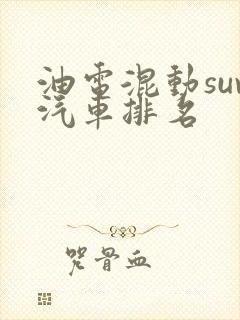 油電混動suv
汽車排名
咒骨血